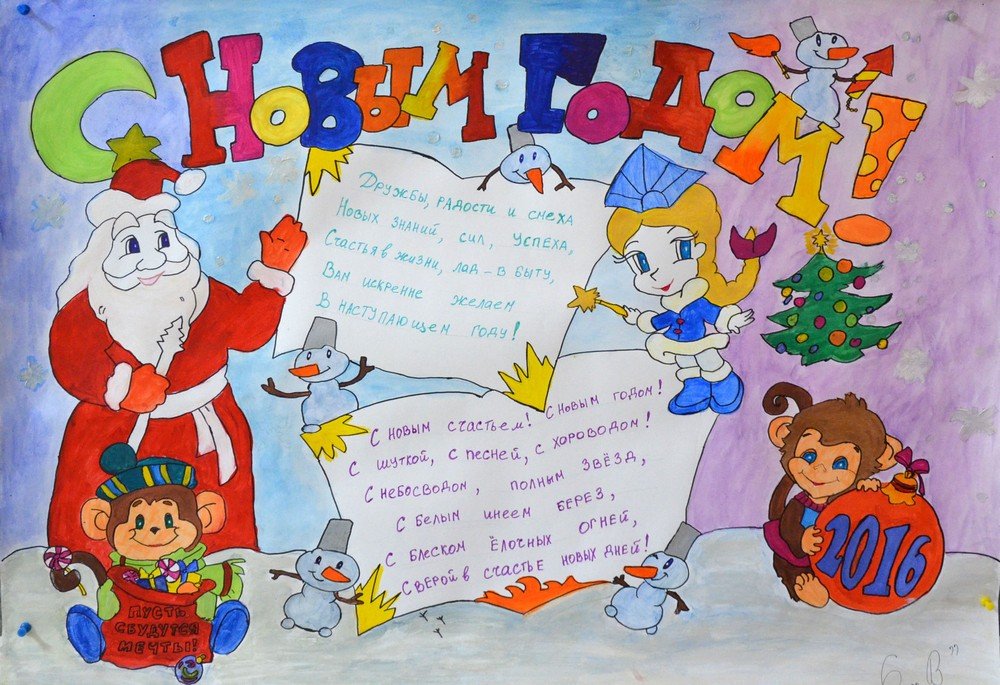 С НОВЫМ ГОДОМ!
Дружбы, радости и смеха
Новых знаний, сил, успеха,
Счастья в жизни, лад – в быту,
Вам искренне желаем
В наступающем году!
С новым счастьем! С новым годом!
С шуткой, с песней, с хороводом!
С небосводом, полным звёзд,
С белым инеем берез,
С блеском ёлочных огней,
С верой в счастье новых дней!
2016
ПУСТЬ
СБУДУТСЯ
МЕЧТЫ!